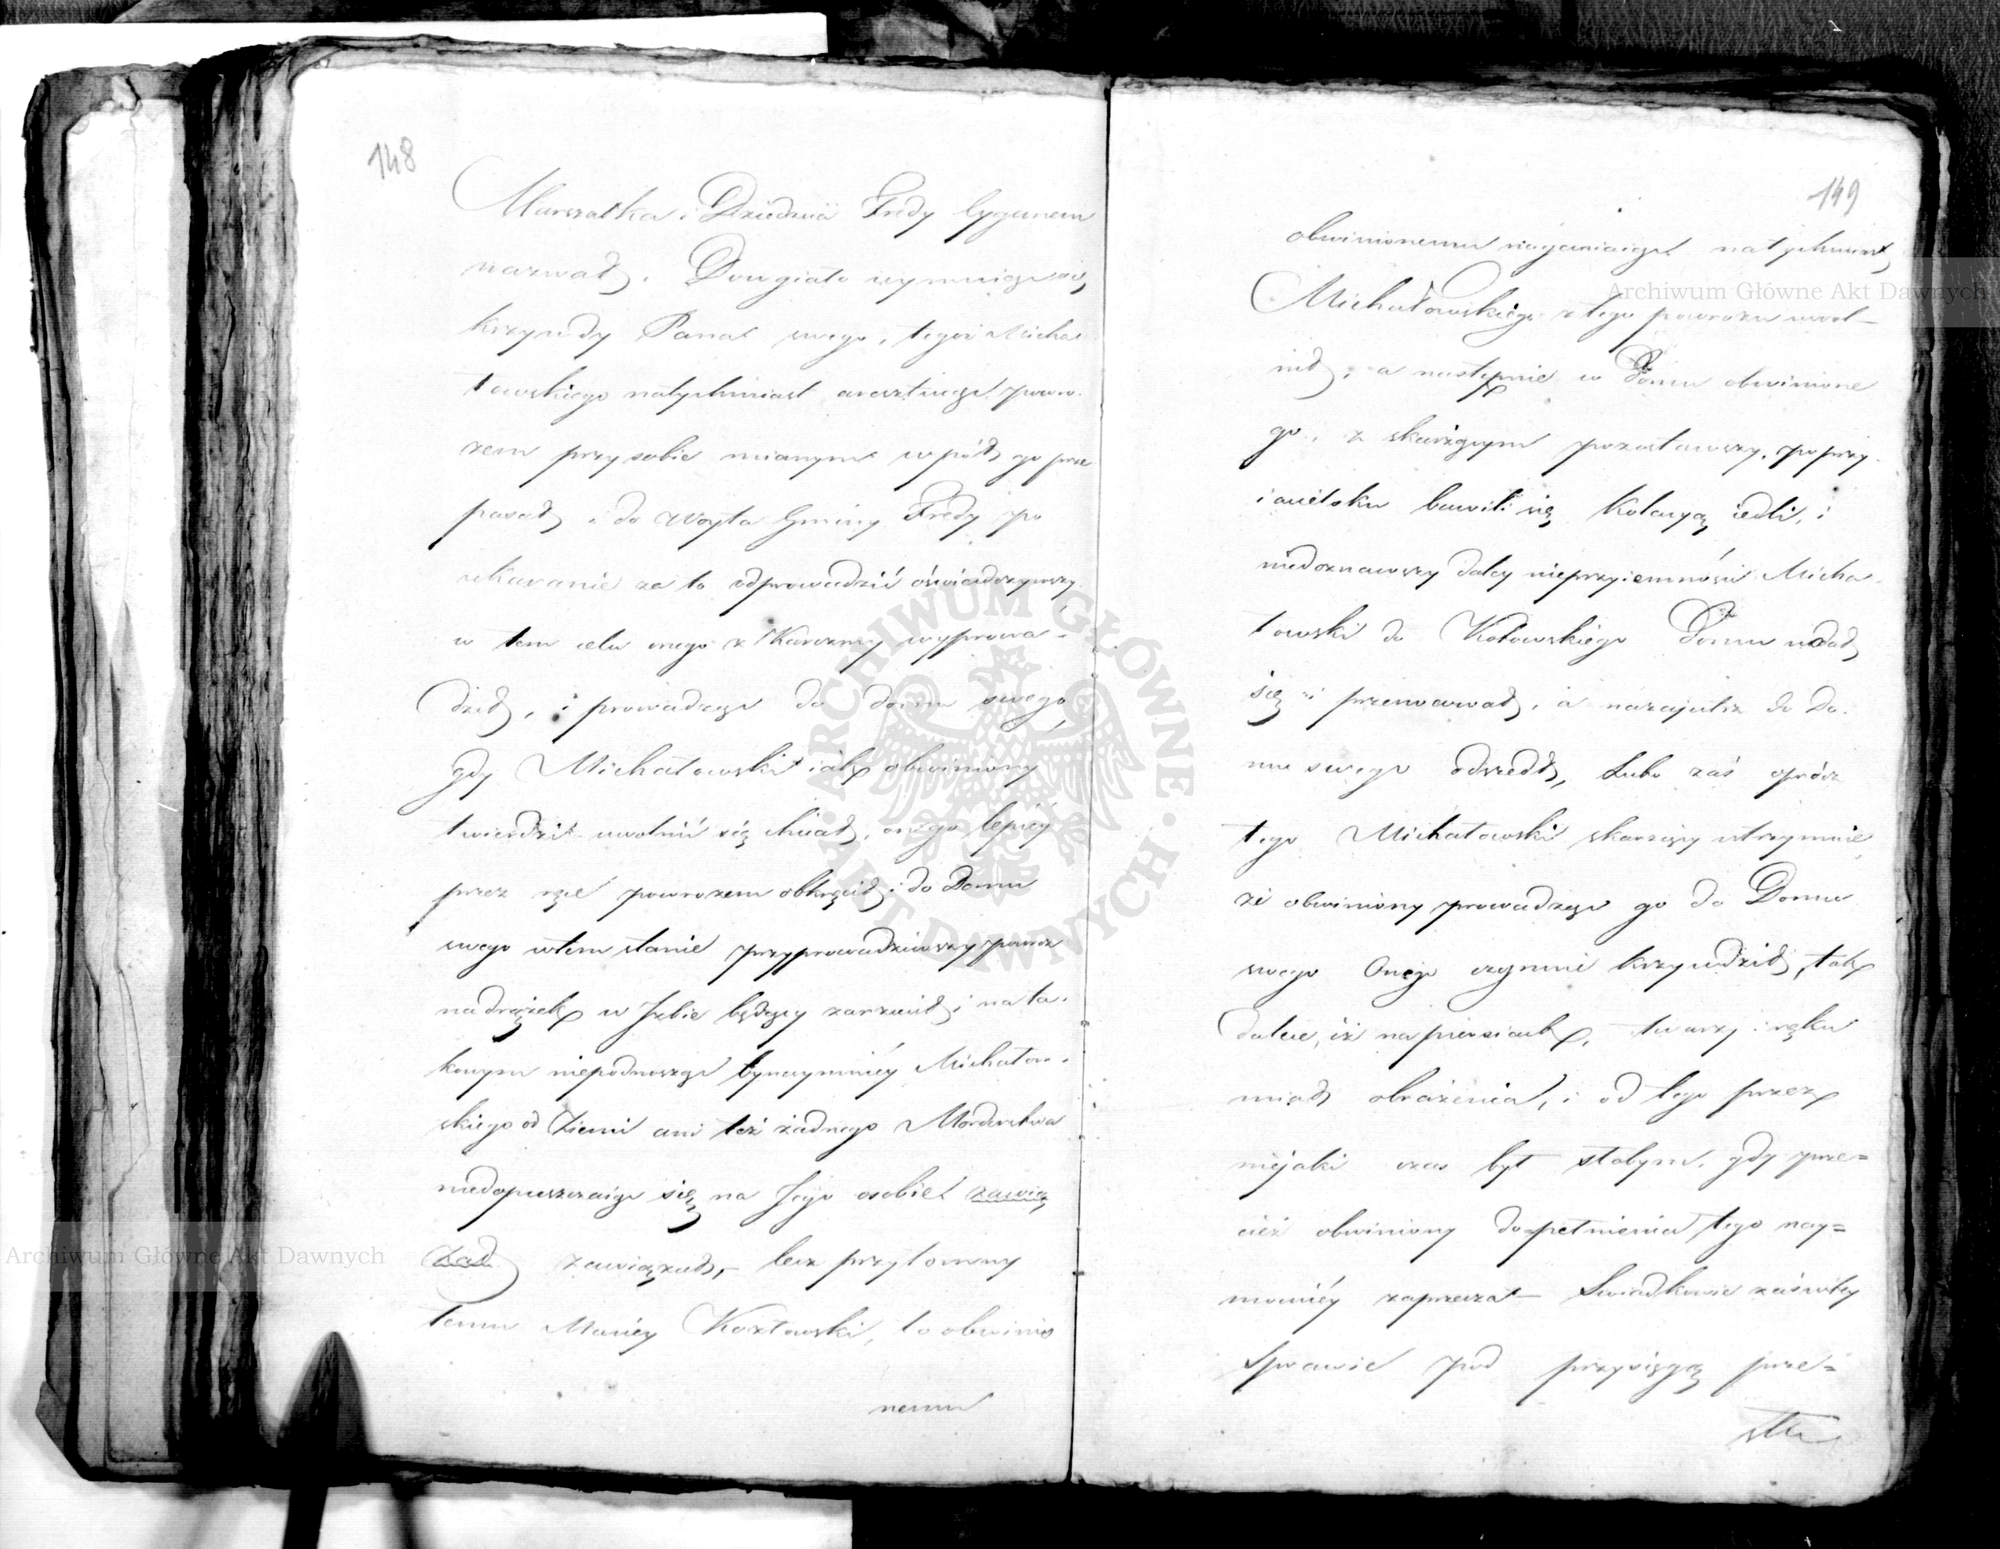 148
Marszałka i Dziedzica Fredy Cyganem
nazwał. Dowgiało uymuiąc się
krzywdy Pana swego, tegoż Micha
łowskiego natychmiast aresztuiąc powro-
zem przy sobie mianym wpół go prze
pasał, i do Woyta Gminy Fredy po
ukaranie za to odprowadzić oświadczywszy,
w tem celu onego z Karczmy wyprowa-
dził, i prowadząc do domu swego,
gdy Michałowski iak obwiniony
twierdził uwolnić się chciał, onego lepiey
przez ręce powrozem obkręcił, i do Domu
swego wtem stanie przyprowadziwszy powroz
na drążek w Izbie będący zarzucił, i na ta-
kowym niepodnosząc bynaymniey Michałow-
skiego od Ziemi ani też żadnego Morderstwa
niedopuszczaiąc się na Jego osobie zawią
zał zawiązał, lecz przytomny
temu Maciey Kozłowski, to obwinio
nemu
149
obwinionemu naganiaiąc natychmiast
Michałowskiego z tego powrozu uwol-
nił, a następnie w Domu obwinione
go, z skarżącym pozostawszy, poprzy-
iacielsku bawili się Kolacyą iedli, i
niedoznawszy daley nieprzyiemności Micha-
łowski do Kołowskiego Domu udał
się i przenocował, a nazajutrz do Do-
mu swego odszedł, Lubo zaś oprócz
tego Michałowski skarżący utrzymuie
że obwiniony prowadząc go do Domu
swego Onego czynnie krzywdził, tak
dalece, iż na piersiach, twarzy i ręku
miał obrażenia, i od tego przez
niejaki czas był słabym, gdy prze=
cież obwiniony dopełnienia tego nay=
mocniey zaprzecza Swiadkowie zaś w tey
sprawie pod przysięgą prze=